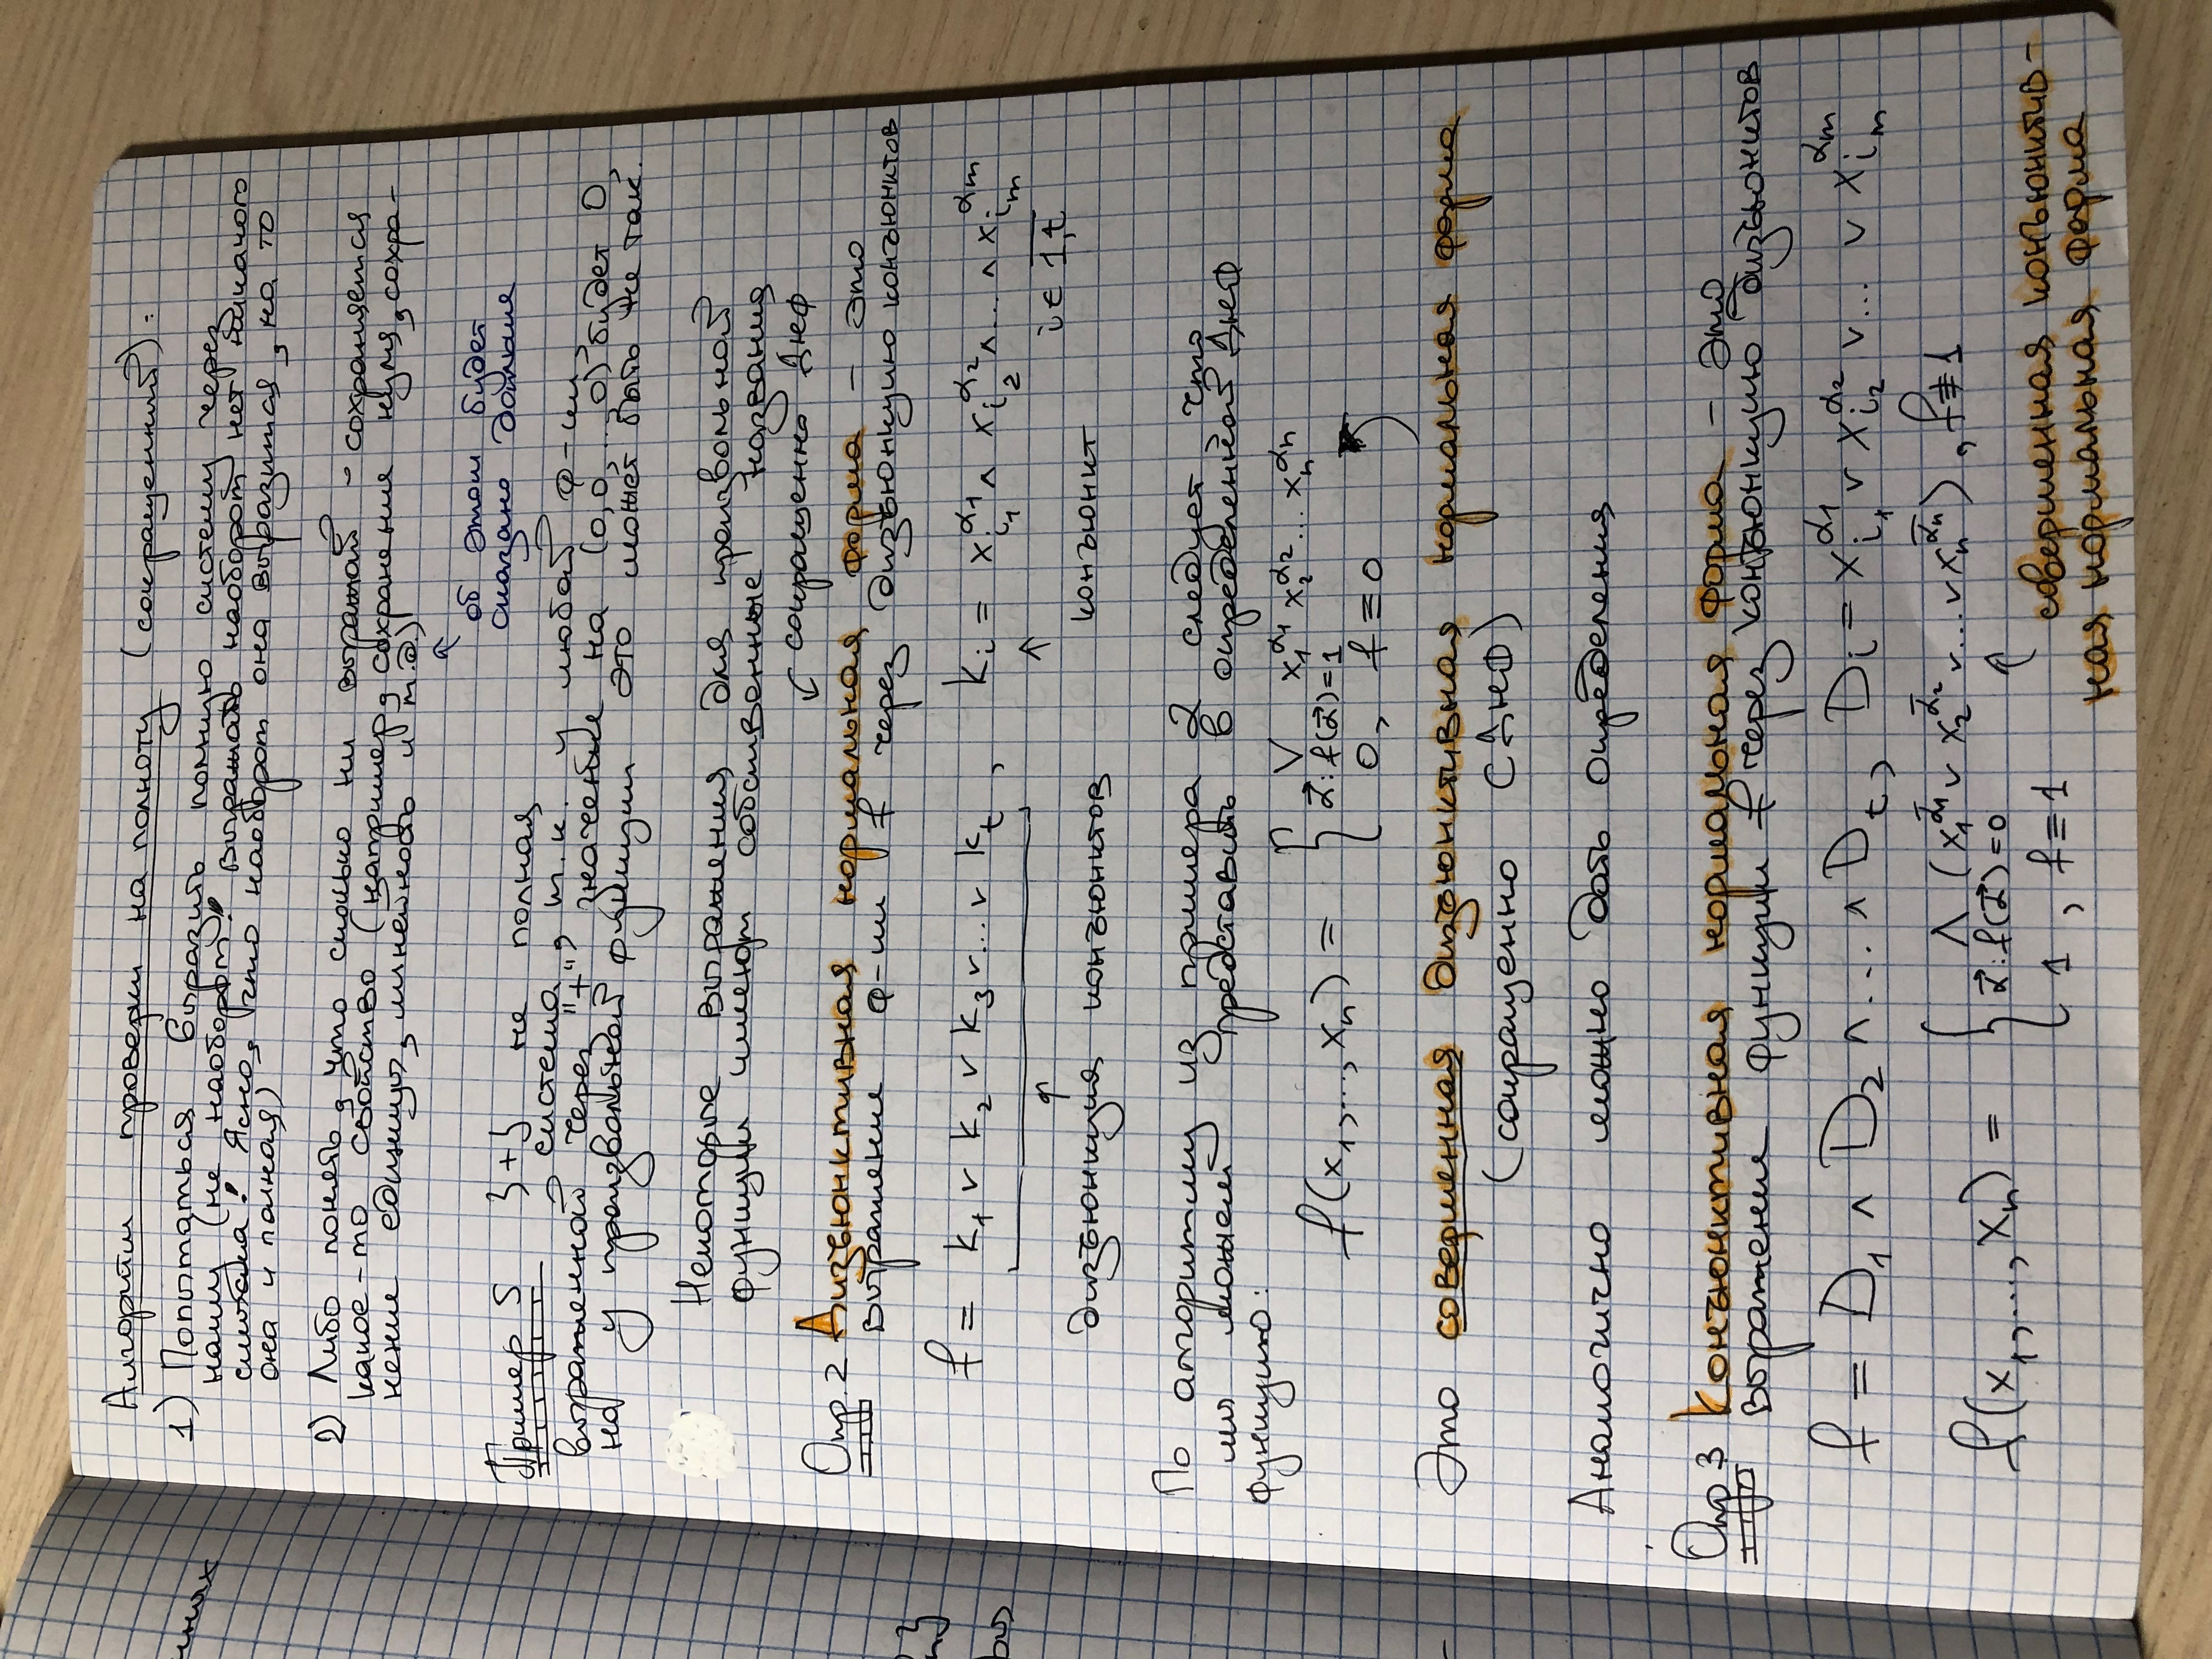 Алгоритм проверки на полноту (сокращенный):
1) Попытаться выразить полную систему через
нашу (не наоборот! Выражать наоборот нет никакого
смысла! Ясно, что наоборот она выразится, на то
она и полная)
2) Либо понять, что сколько ни выражай - сохраняется
какое-то свойство (например, сохранение нуля, сохра-
нение единицы, линейность и т.д.)
↑
об этом будет
сказано дальше
Пример 5 {+} не полная
система, т.к. у любой ф-ции,
выраженной через "+", значение на (0,0,...,0) будет 0,
но у произвольной функции это может быть не так.
Некоторые выражения для произвольной
функции имеют собственные названия
↙ сокращенно ДНФ
Опр. 2 Дизъюнктивная нормальная форма - это
выражение ф-ции f через дизъюнкцию конъюнктов
f = k₁ ∨ k₂ ∨ k₃ ∨...∨ k_t , k_i = x_{i₁}^{α₁} ∧ x_{i₂}^{α₂} ∧...∧ x_{i_m}^{α_m}
↑ ↑ i ∈ \overline{1,t}
дизъюнкция конъюнктов конъюнкт
По алгоритму из примера 2 следует что
мы можем представить в определенной ДНФ
функцию:
f(x₁,...,x_n) = { ∨ x₁^{α₁} x₂^{α₂}...x_n^{α_n}
α⃗: f(α⃗)=1
0, f ≡ 0
Это совершенная дизъюнктивная нормальная форма
(сокращенно СДНФ)
Аналогично можно дать определения
Опр 3 Конъюнктивная нормальная форма - это
выражение функции f через конъюнкцию дизъюнктов
f = D₁ ∧ D₂ ∧...∧ D_t, D_i = x_{i₁}^{α₁} ∨ x_{i₂}^{α₂} ∨... ∨ x_{i_m}^{α_m}
f(x₁,...,x_n) = { ∧ (x₁^{\overline{α₁}} ∨ x₂^{\overline{α₂}} ∨...∨ x_n^{\overline{α_n}}) , f≢1
α⃗: f(α⃗)=0
1 , f ≡ 1
↑ совершенная конъюнктив-
ная нормальная форма